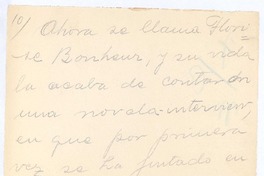 10/ Ahora se llama Flori-
se Bonheur, y su vida
la acaba de contar en
una novela-interview,
en que por primera
vez se ha juntado en